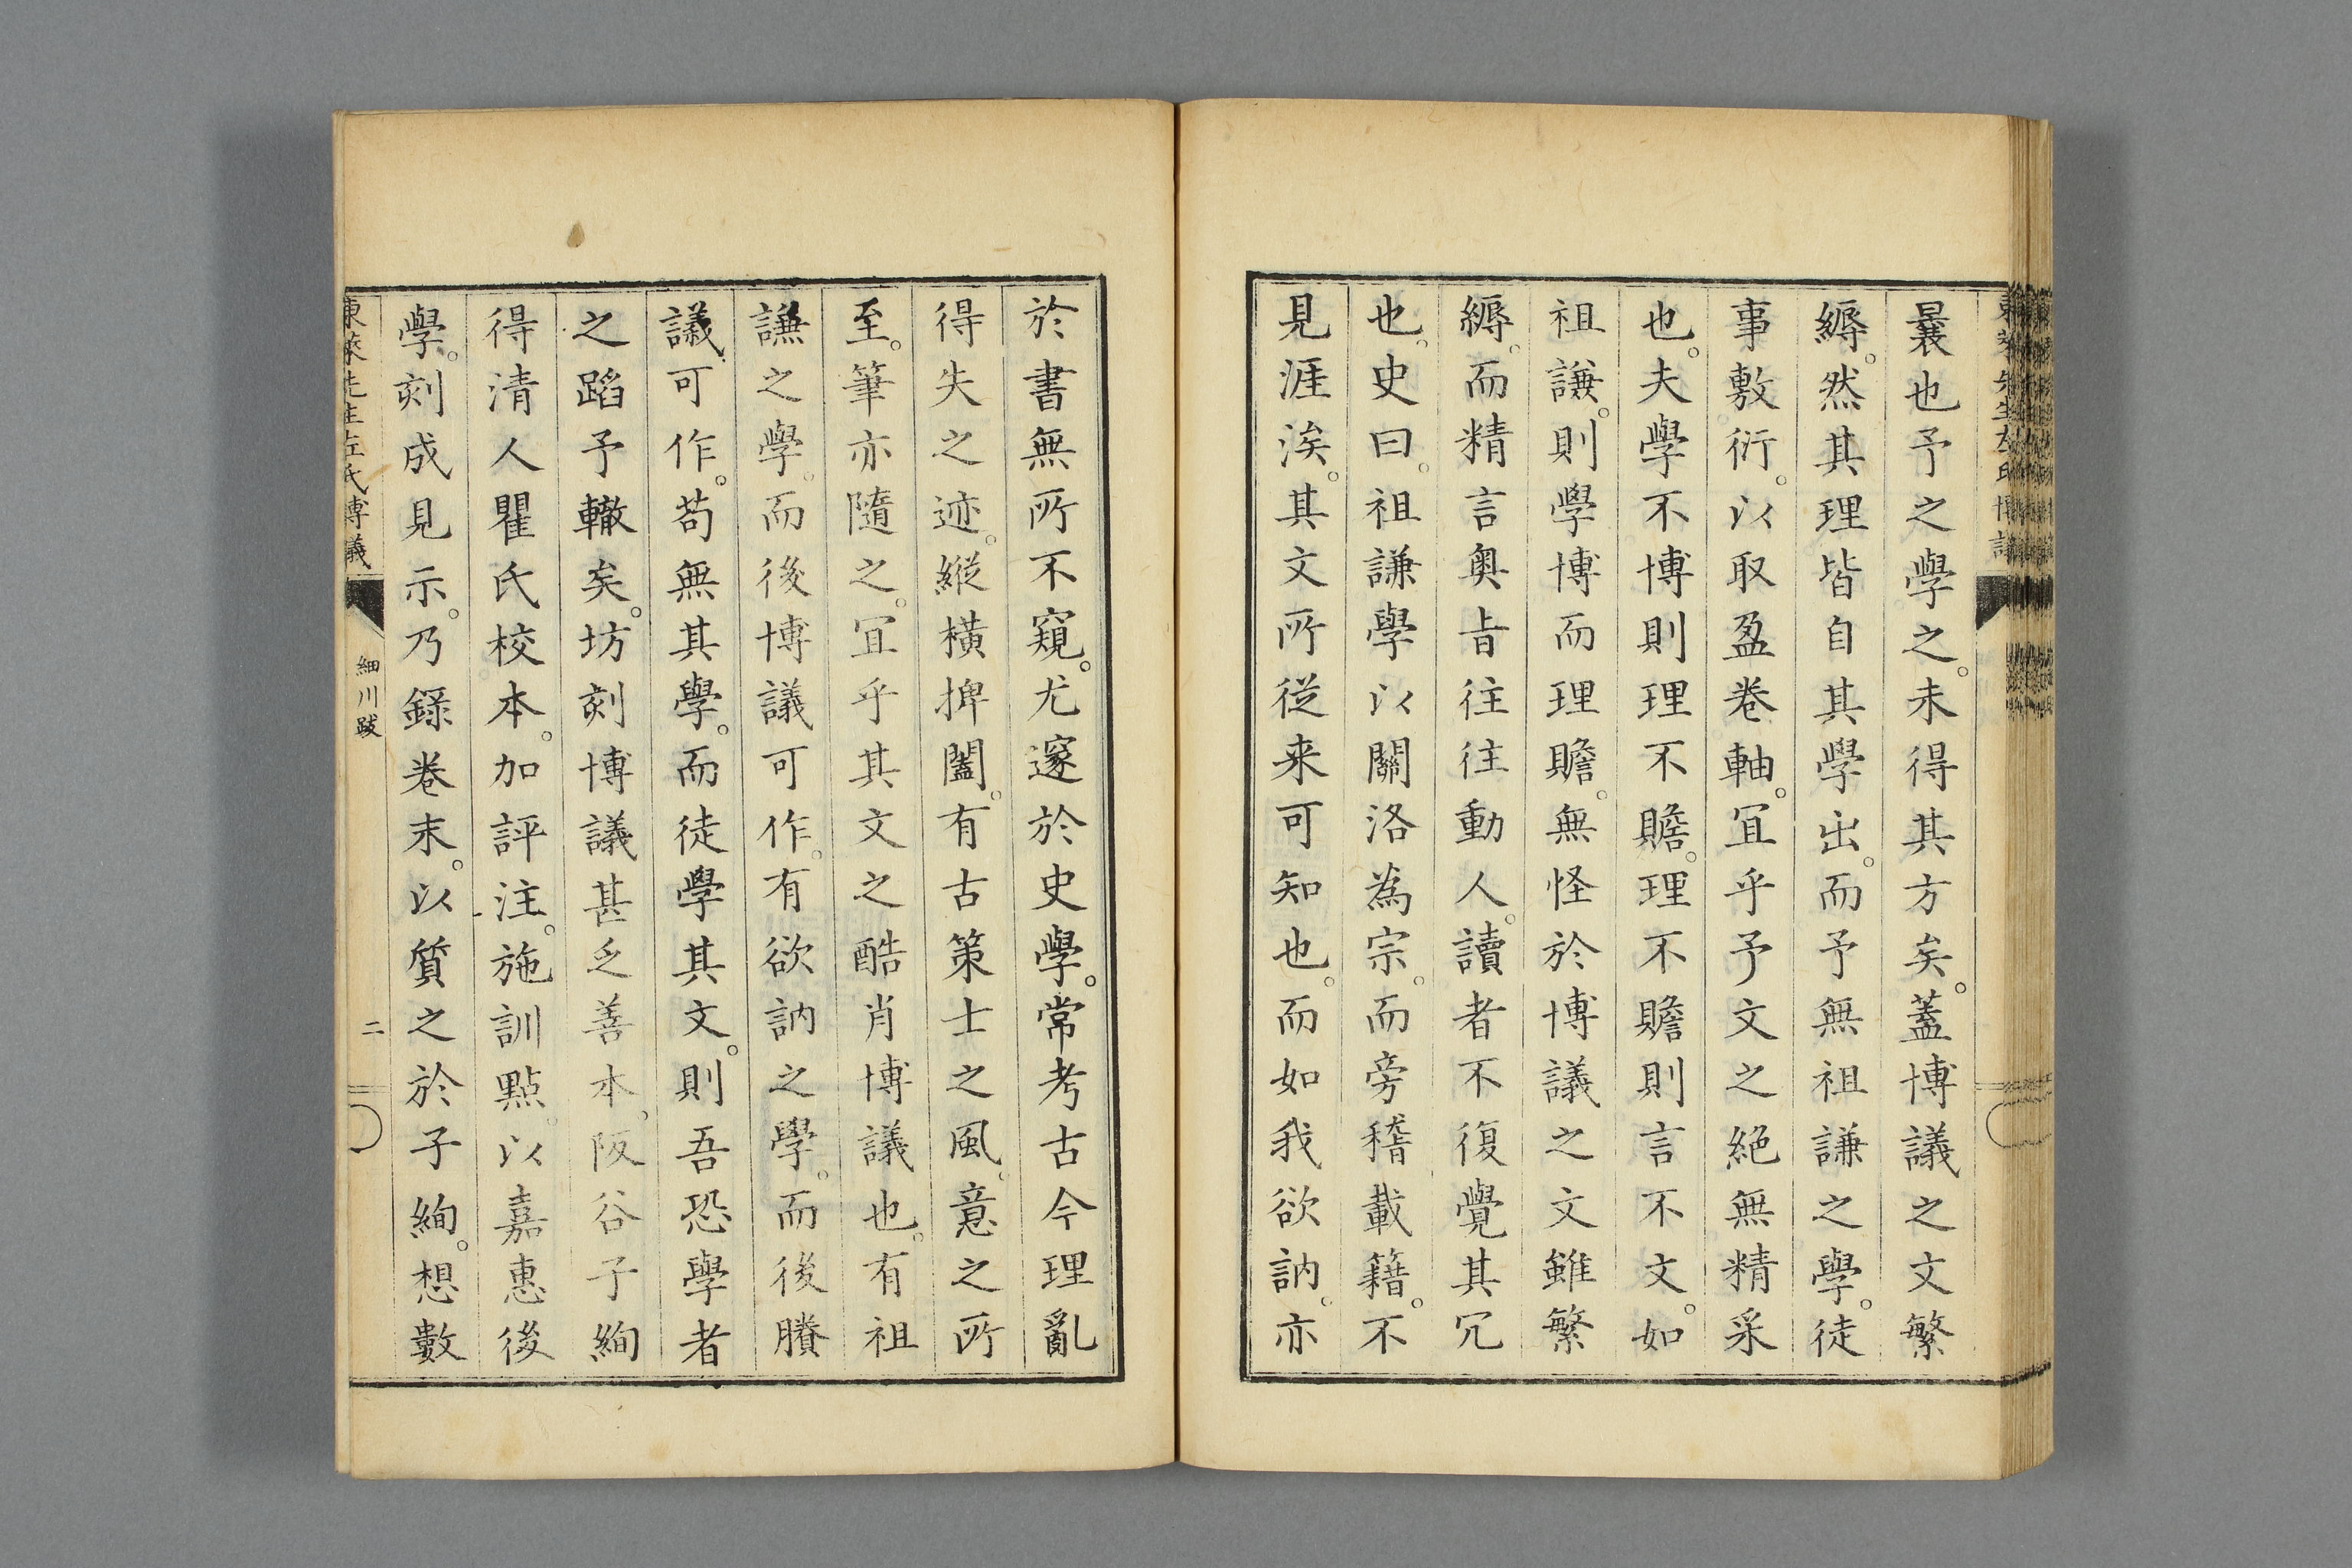 曩也予之學之。未得其方矣。蓋博議之文繁
縟。然其理皆自其學出。而予無祖謙之學。徒
事敷衍。以取盈卷軸。冝乎予文之絶無精采
也。夫學不博則理不贍。理不贍則言不文。如
祖謙。則學博而理贍。無怪於博議之文雖繁
縟。而精言奥㫖往往動人。讀者不復覺其冗
也。史曰。祖謙學以關洛為宗。而旁稽載籍。不
見涯涘。其文所從来可知也。而如我欲訥。亦
於書無所不窺。尤邃於史學。常考古今理亂
得失之迹。縱横捭闔。有古策士之風。意之所
至。筆亦隨之。冝乎其文之酷肖博議也。有祖
謙之學。而後博議可作。有欲訥之學。而後賸
議可作。苟無其學。而徒學其文。則吾恐學者
之蹈予轍矣。坊刻博議甚乏善本。阪谷子絢
得清人瞿氏校本。加評注。施訓點。以嘉惠後
學。刻成見示。乃録卷末。以質之於子絢。想數
東萊先生左氏博議
細川跋
二